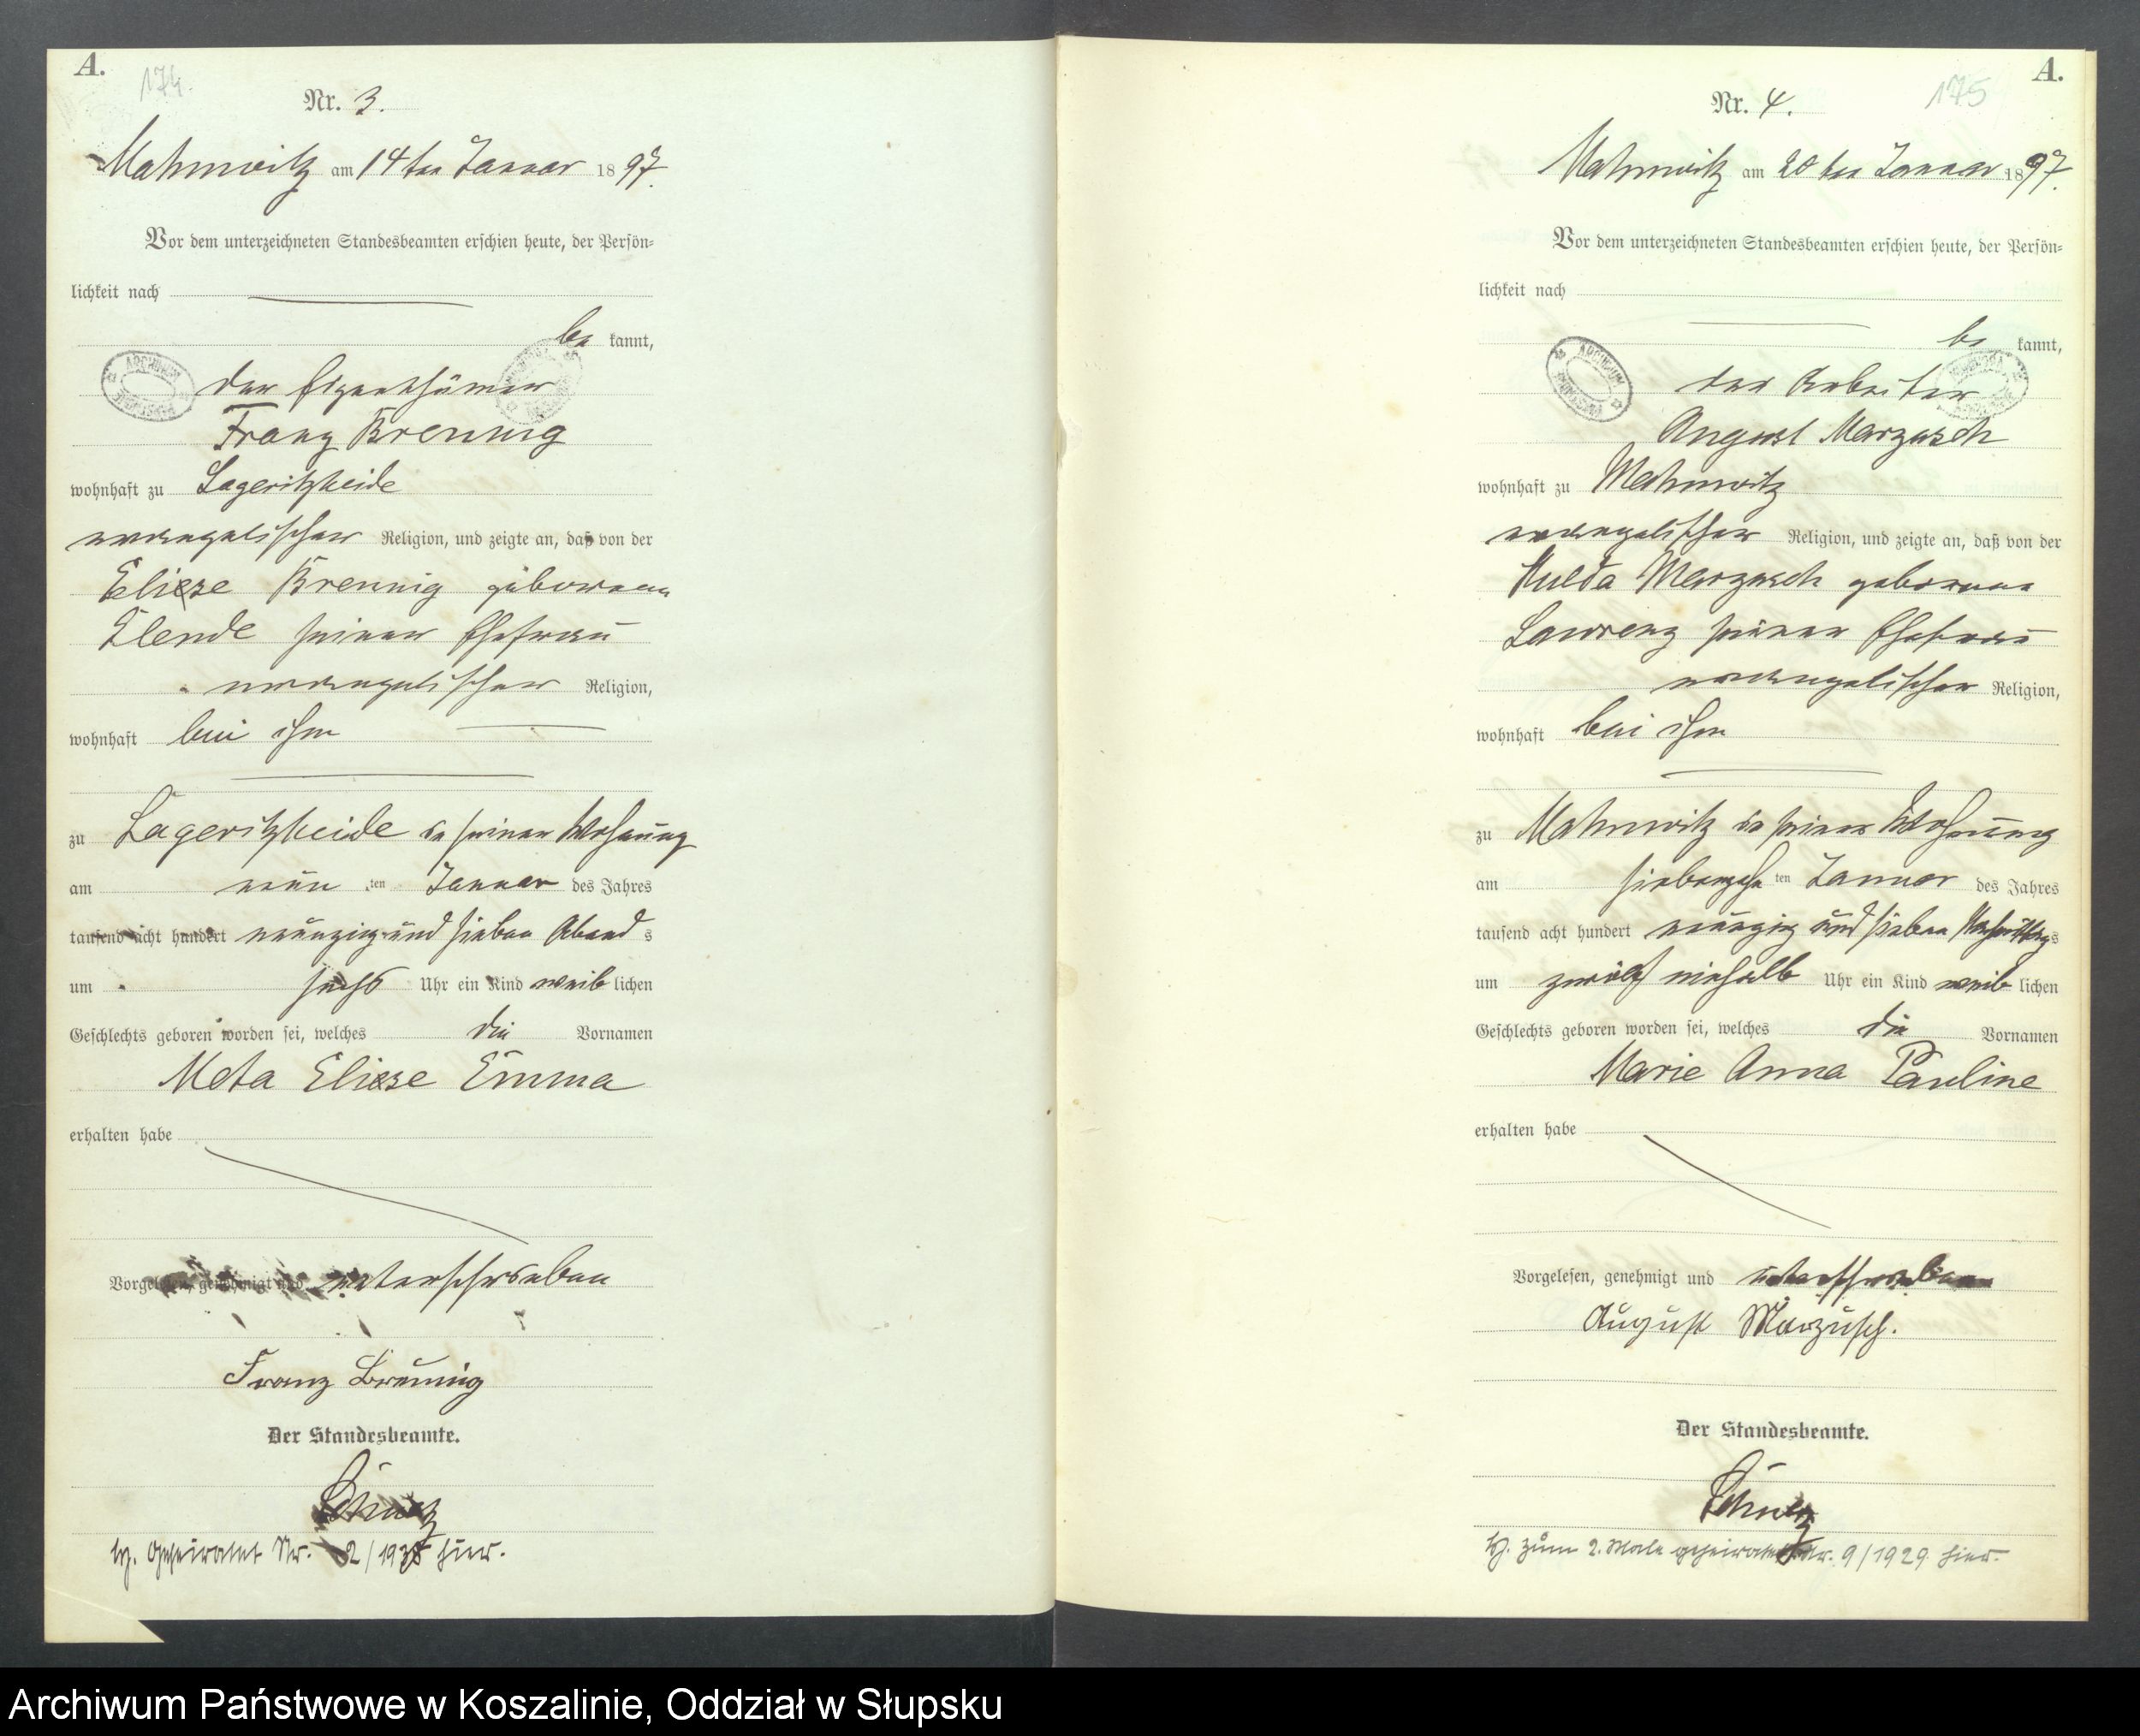 A.
174.
Nr. 3.
Mahnwitz am 14ten Januar 1897.
Vor dem unterzeichneten Standesbeamten erschien heute, der Persön-
lichkeit nach
be kannt,
der Eigenthümer
Franz Brennig
wohnhaft zu Lageritzheide
evangelischer Religion, und zeigte an, daß von der
Eliese Brennig geborenen
Elende seiner Ehefrau
evangelischer Religion,
wohnhaft bei ihm
zu Lageritzheide in seiner Wohnung
am neun ten Januar des Jahres
tausend acht hundert neunzig und sieben Abend s
um sechs Uhr ein Kind weib lichen
Geschlechts geboren worden sei, welches die Vornamen
Meta Eliese Emma
erhalten habe
Vorgelesen, genehmigt und unterschrieben
Franz Brennig
Der Standesbeamte.
Schulz
Geheiratet Nr. 2/19 hier.
A.
175
Nr. 4.
Mahnwitz am 20ten Januar 1897.
Vor dem unterzeichneten Standesbeamten erschien heute, der Persön-
lichkeit nach
be kannt,
der Arbeiter
August Marzusch
wohnhaft zu Mahnwitz
evangelischer Religion, und zeigte an, daß von der
Hulda Marzusch geborene
Lawrenz seiner Ehefrau
evangelischer Religion,
wohnhaft bei ihm
zu Mahnwitz in seiner Wohnung
am siebenzehn ten Januar des Jahres
tausend acht hundert neunzig und sieben Nachmittags
um zwölf einhalb Uhr ein Kind weib lichen
Geschlechts geboren worden sei, welches die Vornamen
Marie Anna Pauline
erhalten habe
Vorgelesen, genehmigt und unterschrieben
August Marzusch.
Der Standesbeamte.
Schulz
zum 2. Male geheiratet Nr. 9/1929 hier.
Archiwum Państwowe w Koszalinie, Oddział w Słupsku